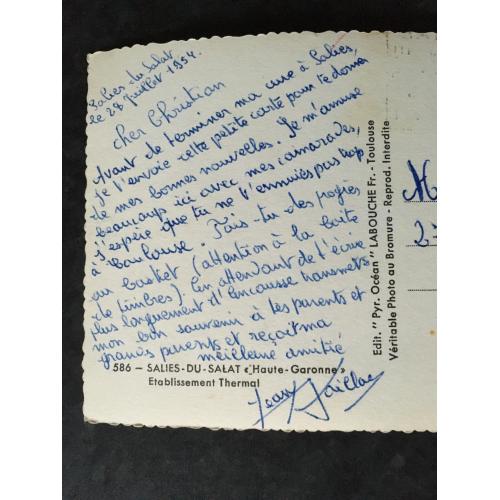 Salies-du-Salat
le 28 juillet 1954.
Cher Christian
Avant de terminer ma cure à Salies,
je t'envoie cette petite carte pour te donner
de mes bonnes nouvelles. Je m'amuse
beaucoup ici avec mes camarades,
J'espère que tu ne t'ennuies pas trop
à Toulouse. Fais-tu des
au basket (attention à la boîte
de timbres). En attendant de t'écrire
plus longuement d'Encausse transmets
mon bon souvenir à tes parents et
grands parents et reçoit ma
meilleure amitié
586 — SALIES-DU-SALAT « Haute-Garonne »
Etablissement Thermal
Jean
Edit. " Pyr. Océan " LABOUCHE Fr. - Toulouse
Véritable Photo au Bromure - Reprod. Interdite